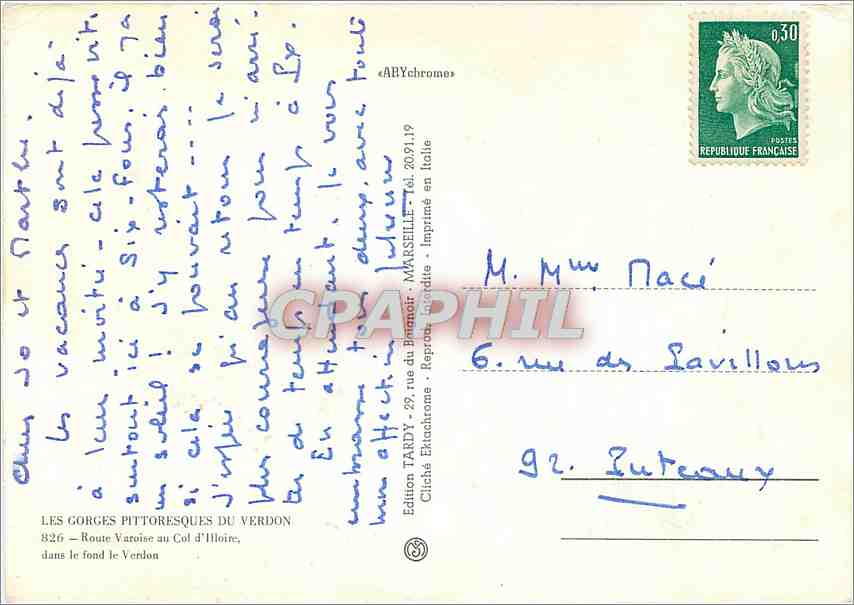 Chers Jo et Marthe.
Les vacances sont déjà
à leur moitié - cela passe vite.
surtout ici à Six-Fours, il y a
un soleil ! J'y resterais bien
si cela se pouvait ----
J'espère qu'au retour je serai
plus courageuse pour m'arrê-
ter de temps en temps à
En attendant, je vous
embrasse tous deux, avec toute
mon affection
«ABYchrome»
Edition TARDY - 29, rue du Baignoir - MARSEILLE - Tél. 20.91.19
Cliché Ektachrome - Reprod. Interdite - Imprimé en Italie
0,30
POSTES
REPUBLIQUE FRANÇAISE
M. Mme Macé
6. rue des Pavillons
92. Puteaux
CPAPHIL
LES GORGES PITTORESQUES DU VERDON
826 — Route Varoise au Col d'Illoire,
dans le fond le Verdon